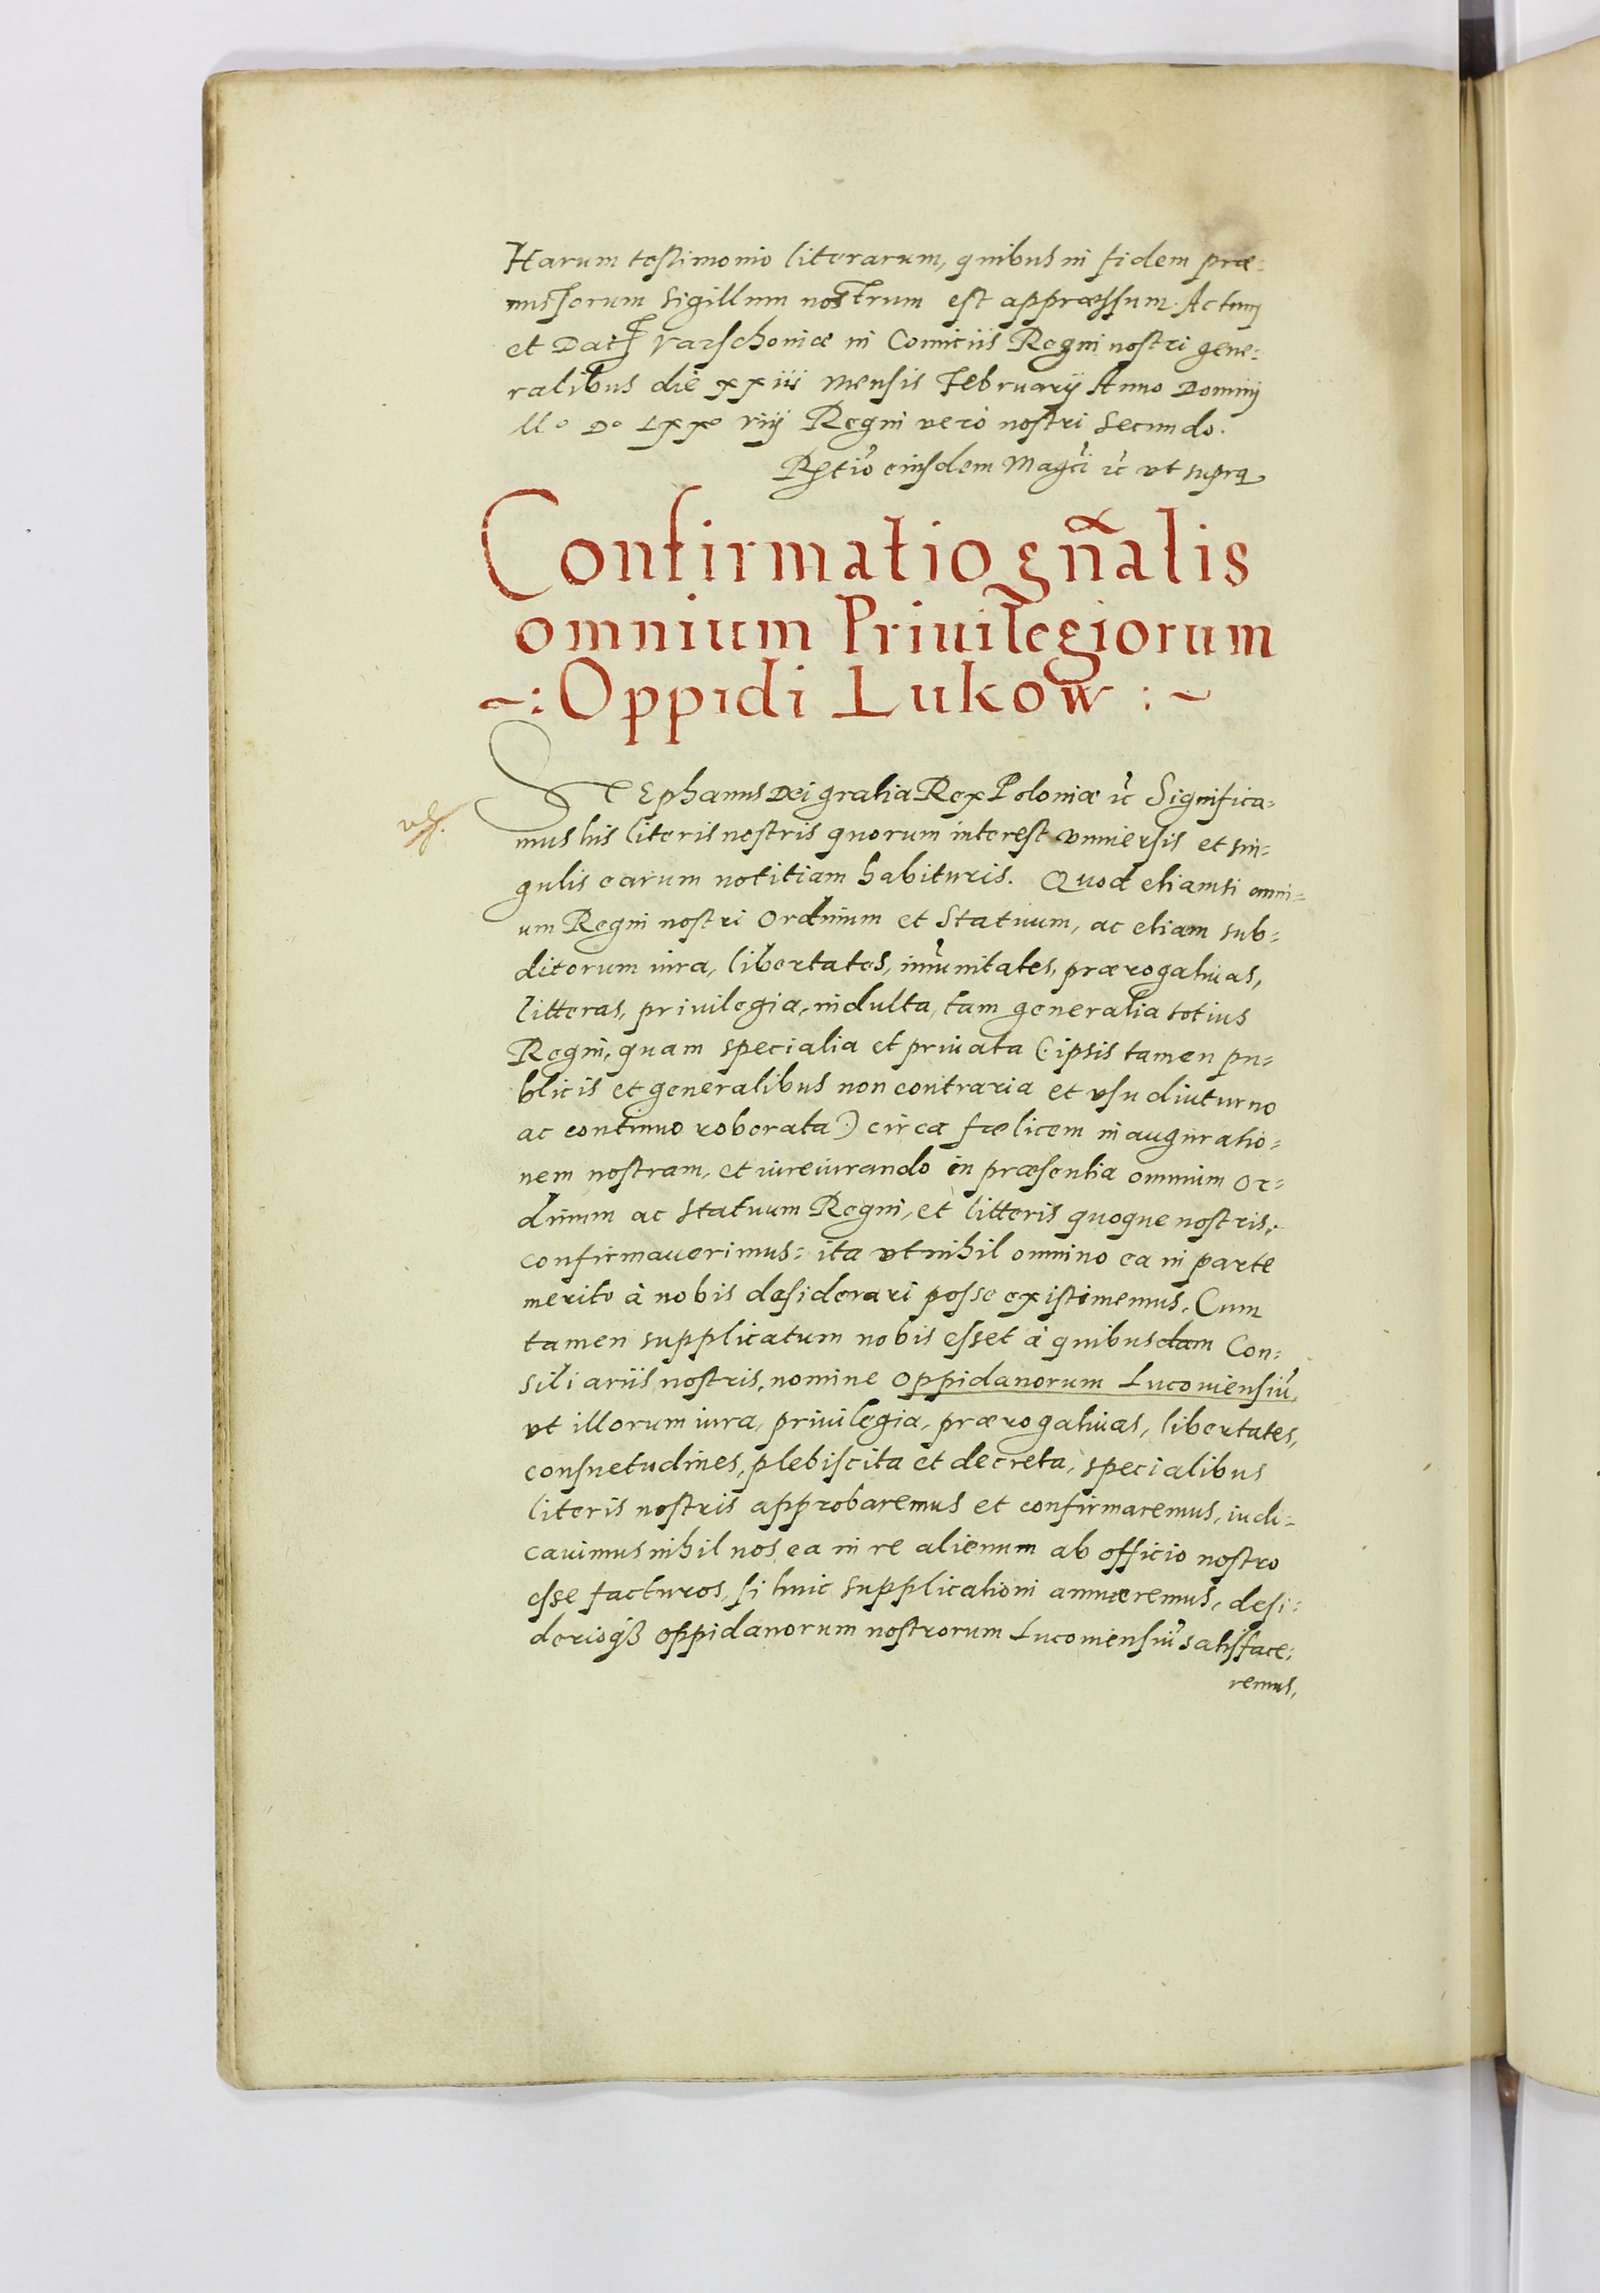 Harum testimonio literarum, quibus in fidem præ-
missorum Sigillum nostrum est appræssum. Actum
et Dat Varschoviæ in Comiciis Regni nostri gene-
ralibus die xxiii Mensis Februarij Anno Domini
M° D° Lxx° viij Regni vero nostri secundo.
eiusdem Magci ut supra
Confirmatio gñalis
omnium Privilegiorum
~: Oppidi Lukow :~
STEphanus Dei gratia Rex Poloniæ Significa-
mus his literis nostris quorum interest vniuersis et sin-
gulis earum notitiam habituris. Quod etiamsi omni-
um Regni nostri Ordinum et Statuum, ac etiam sub-
ditorum iura, libertates, imunitates, prærogatiuas,
litteras, priuilegia, indulta, tam generalia totius
Regni, quam specialia et priuata (: ipsis tamen pu-
blicis et generalibus non contraria et vsu diuturno
ac continuo roborata :) circa fœlicem inauguratio-
nem nostram, et iureiurando in præsentia omnium Or-
dinum ac Statuum Regni, et litteris quoque nostris,
confirmauerimus: ita vt nihil omnino ea in parte
merito à nobis desiderari posse existimemus. Cum
tamen supplicatum nobis esset à quibusdam Con-
siliariis nostris, nomine Oppidanorum Lucouiensiũ,
vt illorum iura, priuilegia, prærogatiuas, libertates,
consuetudines, plebiscita et decreta, specialibus
literis nostris approbaremus et confirmaremus, iudi-
cauimus nihil nos ea in re alienum ab officio nostro
esse facturos, si huic supplicationi annueremus, desi-
derioq3 oppidanorum nostrorum Lucouiensiũ satisface-
remus,